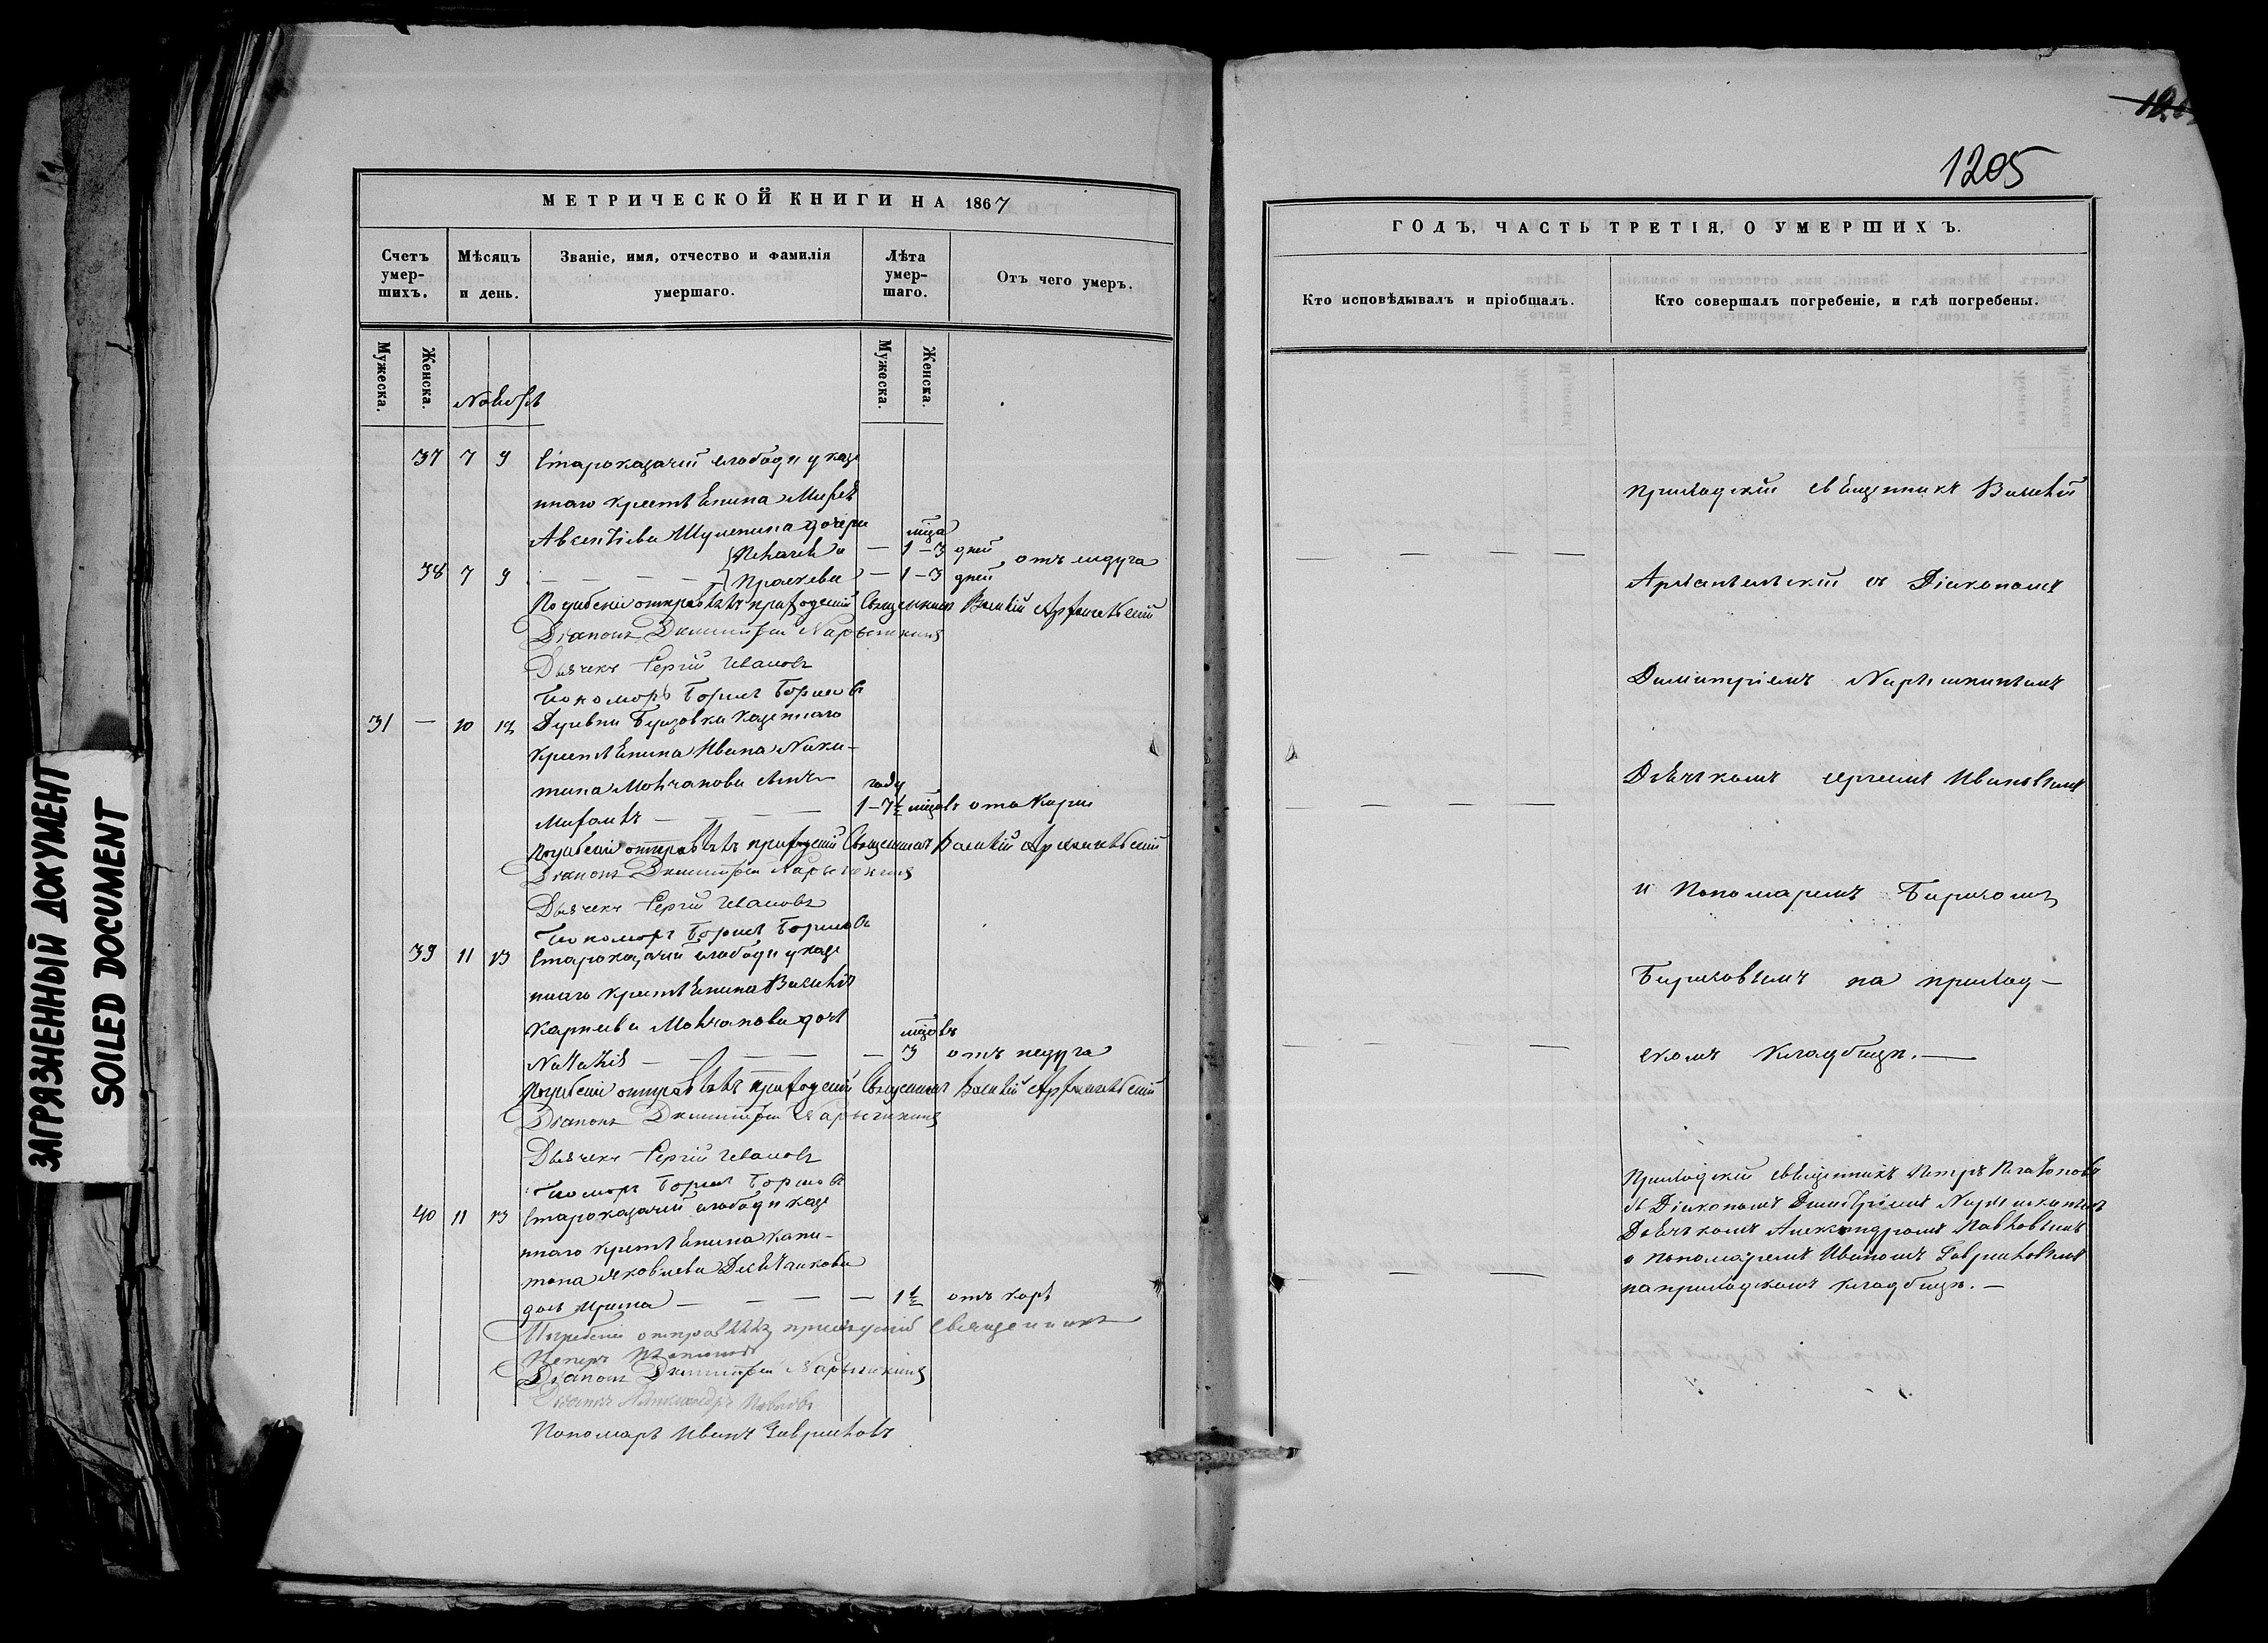 ЗАГРЯЗНЕННЫЙ ДОКУМЕНТ
SOILED DOCUMENT
МЕТРИЧЕСКОЙ КНИГИ НА 1867
Счетъ умер-шихъ.
Мѣсяцъ и день.
Званіе, имя, отчество и фамилія умершаго.
Лѣта умер-шаго.
Отъ чего умеръ.
Мужеска.
Женска.
Мужеска.
Женска.
Ноябрь
37 7 9 Староказачей слободы казе
ннаго крестьянина
Авксентіева дочери
1 – 3 дней
отъ недуга
38 7 9 — — — — Праскева — 1 – 3 дней
Погребеніе отправлялъ приходскій Священникъ Василій Архангельскій
Діаконъ Димитрій Нарышкинъ
Дьячекъ Сергій Ивановъ
Пономарь Борисъ Борисовъ
31 — 10 12 Деревни казеннаго
крестьянина Ивана Ники-
тина Молчанова сынъ
году
Михаилъ — — — — 1 – 7½ мцовъ отъ Кори
Погребеніе отправлялъ приходскій Священникъ Василій Архангельскій
Діаконъ Димитрій Нарышкинъ
Дьячекъ Сергій Ивановъ
Пономарь Борисъ Борисовъ
39 11 13 Староказачей слободы казе
ннаго крестьянина Василія
Карпова Молчанова дочь
мцовъ
Наталія — — — — — 3 отъ недуга
Погребеніе отправлялъ приходскій Священникъ Василій Архангельскій
Діаконъ Димитрій Нарышкинъ
Дьячекъ Сергій Ивановъ
Пономарь Борисъ Борисовъ
40 11 13 Староказачей слободы казе
ннаго крестьянина Капи-
тона Яковлева
дочь Ирина — — — — 1½ отъ корь
Погребеніе отправлялъ приходскій Священникъ
Петръ Платоновъ
Діаконъ Димитрій Нарышкинъ
Дьячекъ Александръ Павловъ
Пономарь Иванъ Гавриловъ
1205
ГОДЪ, ЧАСТЬ ТРЕТІЯ, О УМЕРШИХЪ.
Кто исповѣдывалъ и пріобщалъ.
Кто совершалъ погребеніе, и гдѣ погребены.
Приходскій священникъ Василій
Архангельскій съ Діакономъ
Димитріемъ Нарышкинымъ
Дьячкомъ Сергіемъ Ивановымъ
и Пономаремъ Борисомъ
Борисовымъ на приход-
скомъ кладбищѣ. —
Приходскій священникъ Петръ Платоновъ
съ Діакономъ Димитріемъ Нарышкинымъ
Дьячкомъ Александромъ Павловымъ
и пономаремъ Иваномъ Гавриловымъ
на приходскомъ кладбищѣ. —